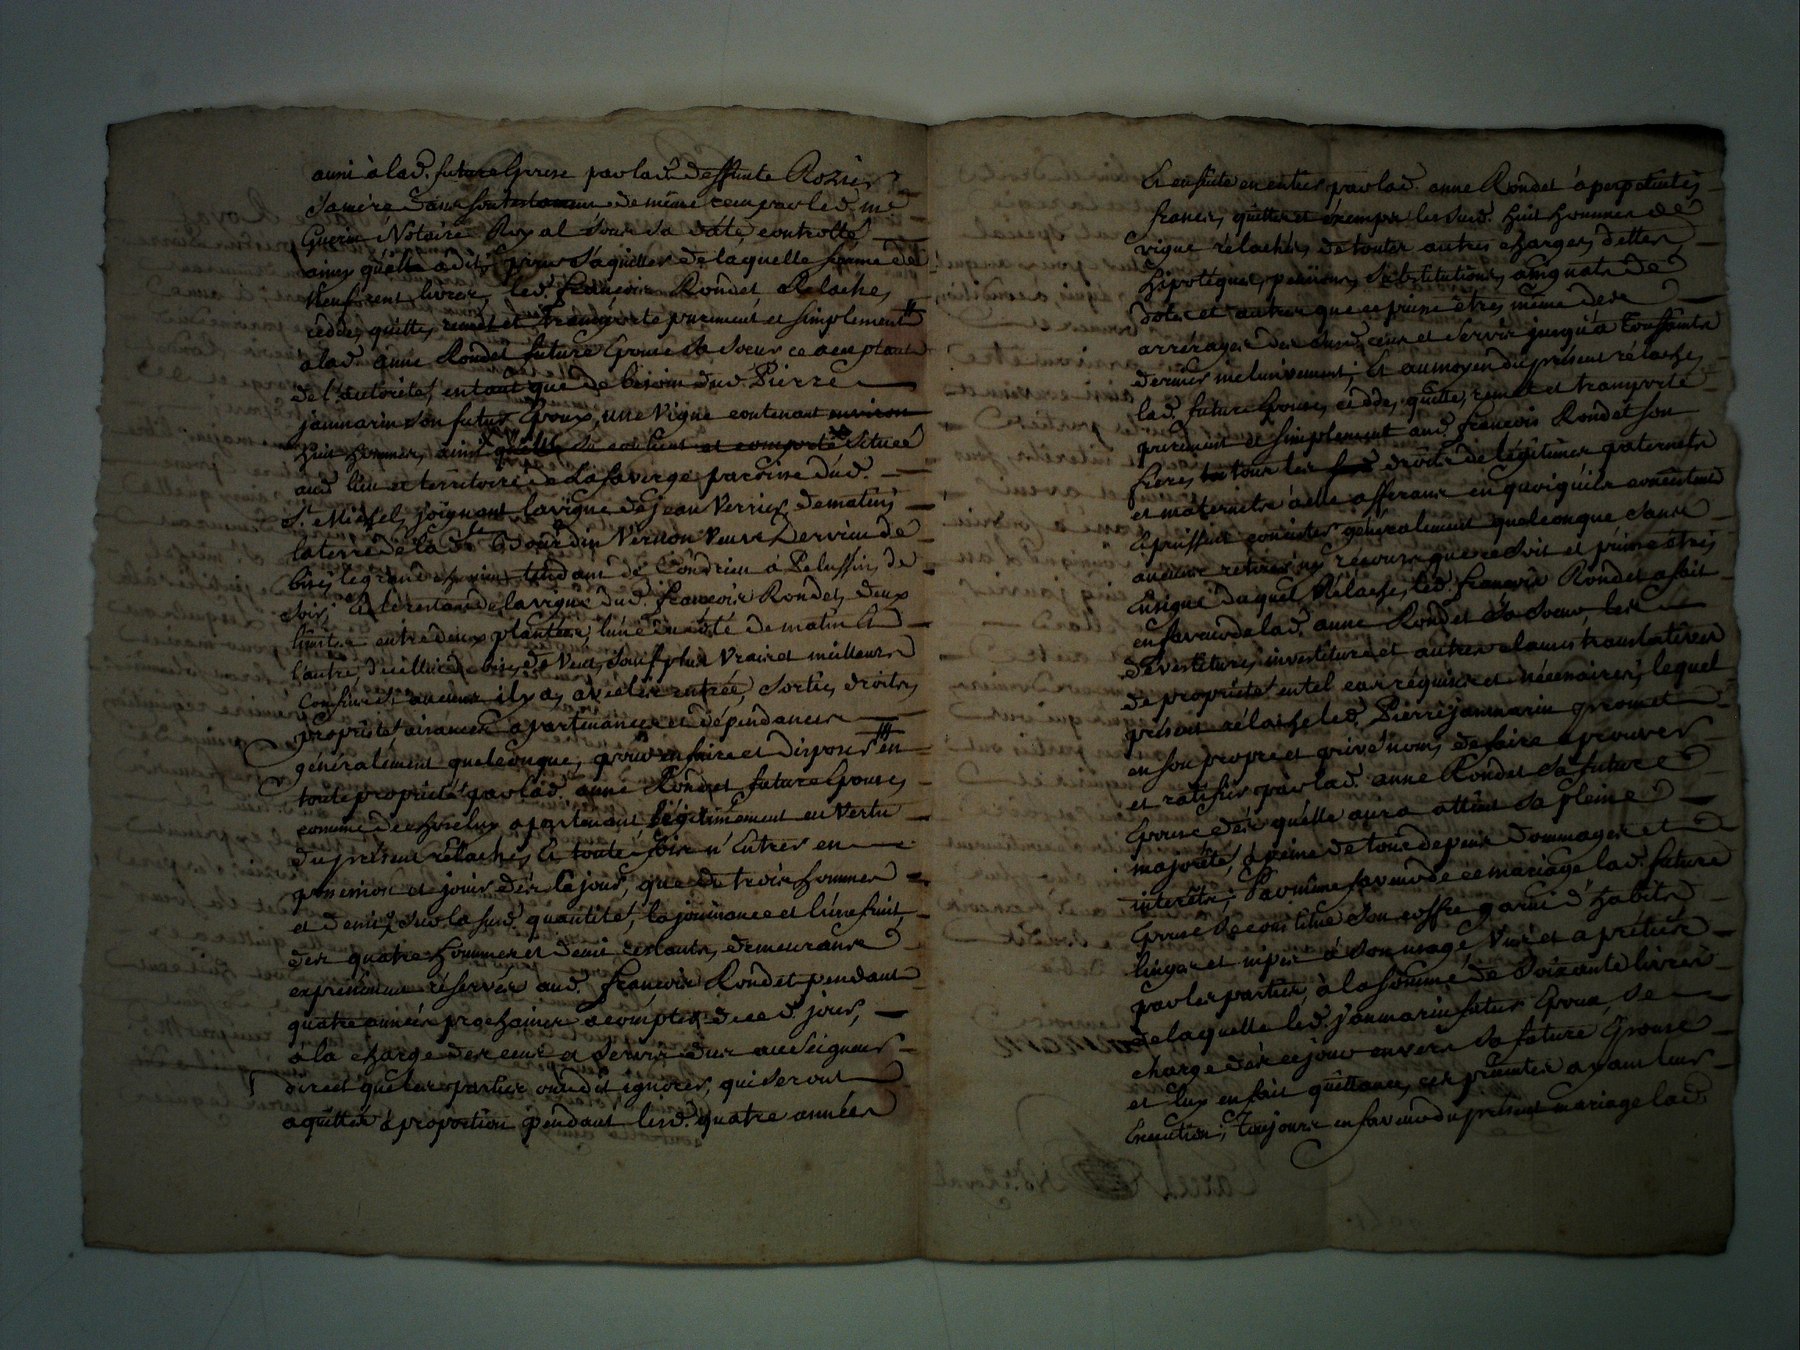 aussi à lad. future Epouse par lad. deffunte Rozier
sa mère dans son testament de même reçu par led. me
Guerin Notaire Royal sous sa date, controllé,
ainsy quelle a dit, pour s'aquitter de laquelle somme de
neuf cent livres, led. françois Rondet Relache,
cedde, quitte, remet et transporte purement et simplement
à lad. anne Rondet future Epouse sa soeur ce acceptant
de l'autorité, en tant que de besoin dud. Pierre
janmarin son futur Epoux, une vigne contenant environ
huit hommes, ainsi quelle se contient et comporte située
aud. lieu et territoire de paroisse dud.
St. Michel, joignant la vigne de jean Verrier de matin,
la terre de la de. Vernon Veuve Dervieu de
bise, le grand chemin tendant de Condrieu à Pelussin, de
soir; Et le restant de la vigne dud. françois Rondet, deux
limites entre deux plantées, l'une du coté de matin Et
l'autre de vent, sauf plus vrais et meilleurs
confins si aucuns il y a, avec les entrée, sorties, droits,
proprieté aisances apartenances et dépendances
généralement quelconques, pour en faire et disposer en
toute proprieté par lad. anne Rondet future Epouse,
comme de chose luy apartenant légitimement en vertu
du présent relaché, Et toute fois n'Entrer en
possession et jouir dès ce jour, que de trois hommes
et demi, sur la susd. quantité, la jouissance et l'usufruit
des quatre hommes et demi restants, demeurants
expressement réservés aud. françois Rondet pendant
quatre années prochaines a compter de ced. jour,
à la charge des cens et servis dus au seigneur
direct que les parties ont dit ignorer, qui seront
aquittés à proportion pendant lesd. quatre années
Et ensuite en entier par lad. anne Rondet à perpetuité,
francs, quittes et exempts lesd. huit hommes de
vigne relachés, de toutes autres charges, dettes,
hipoteques, pensions, substitutions, assignats de
dots et autres que ce puisse être, même des
arrérages des susd. cens et servis jusqu'à toussaints
dernier inclusivement; Et au moyen du présent relaché,
lad. future Epouse, cedde, quitte, remet et transporte
purement et simplement aud. françois Rondet son
frère, tous les droits de légitimes paternels
et maternels à elle afferants en quoi qu'ils consistent
et puissent consister généralement quelconques sans
aucune retenue ny recours que ce soit et puisse être;
Ensigne duquel Relaché, led. françois Rondet a fait
en faveur de lad. anne Rondet sa soeur, les
devestitures, investitures et autres clauses translatives
de proprieté en tel cas requises et nécessaires; lequel
présent relaché led. Pierre janmarin promet
en son propre et privé nom, de faire aprouver
et ratifier par lad. anne Rondet sa future
Epouse dès quelle aura atteint sa pleine
majorité, à peine de tous depens dommages et
interets; Par même faveur de ce mariage lad. future
Epouse se constitue son coffre garni d'habits
linges et nipes à son usage, vus et apréciés
par les parties, à la somme de soixante livres
de laquelle led. janmarin futur Epoux, se
charge dès ce jour envers sa future Epouse
et luy en fait quittance, ces présentes ayant leur
Execution; Toujours en faveur du présent mariage lad.